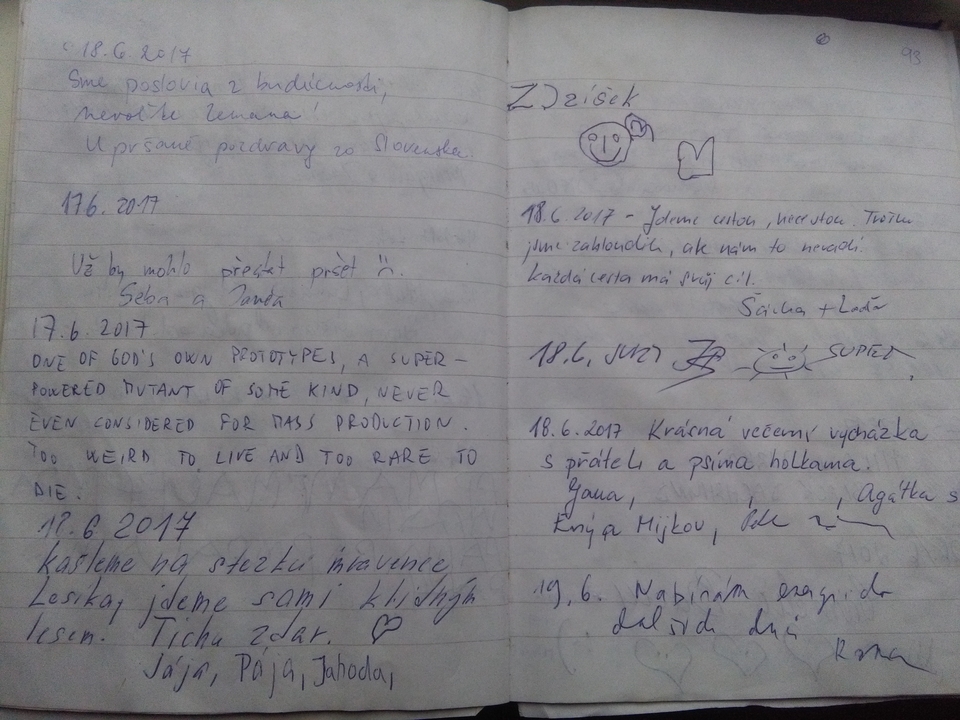 18.6.2017
Sme poslovia z budúcnosti,
nevoľte Zemana!
Upršané pozdravy zo Slovenska
17.6.2017
Už by mohlo přestat pršet :(.
Seba a
17.6.2017
ONE OF GOD'S OWN PROTOTYPES, A SUPER-
POWERED MUTANT OF SOME KIND, NEVER
EVEN CONSIDERED FOR MASS PRODUCTION.
TOO WEIRD TO LIVE AND TOO RARE TO
DIE.
18.6.2017
Kašleme na stezku mravence
Lesíka, jdeme sami klidným
lesem. Tichu zdar. ♡
Jája, Pája, Jahoda,
93
ZDzišek
18.6.2017 - Jdeme cestou, necestou. Trochu
jsme zabloudili, ale nám to nevadí.
Každá cesta má svůj cíl.
Šárka +
18.6. SUPER
18.6.2017 Krásná večerní vycházka
s přáteli a psíma holkama.
Jana, , , Agátka s
19.6. Nabírám energii do
dalších dnů